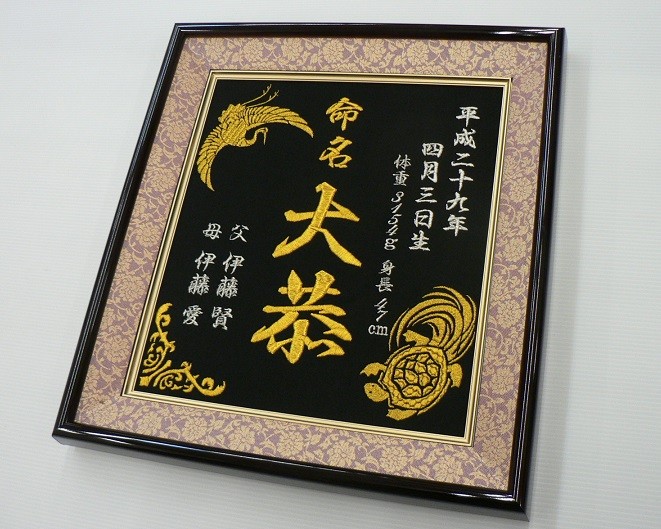 平成二十九年
四月三日生
体重3154g 身長47cm
命名
大恭
父 伊藤賢
母 伊藤愛